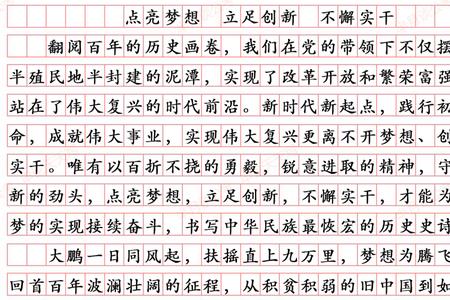 点亮梦想 立足创新 不懈实干
翻阅百年的历史画卷，我们在党的带领下不仅摆
半殖民地半封建的泥潭，实现了改革开放和繁荣富强
站在了伟大复兴的时代前沿。新时代新起点，践行初
命，成就伟大事业，实现伟大复兴更离不开梦想、创
实干。唯有以百折不挠的勇毅，锐意进取的精神，守
新的劲头，点亮梦想，立足创新，不懈实干，才能为
梦的实现接续奋斗，书写中华民族最恢宏的历史史诗
大鹏一日同风起，扶摇直上九万里，梦想为腾飞
回首百年波澜壮阔的征程，从积贫积弱的旧中国到如